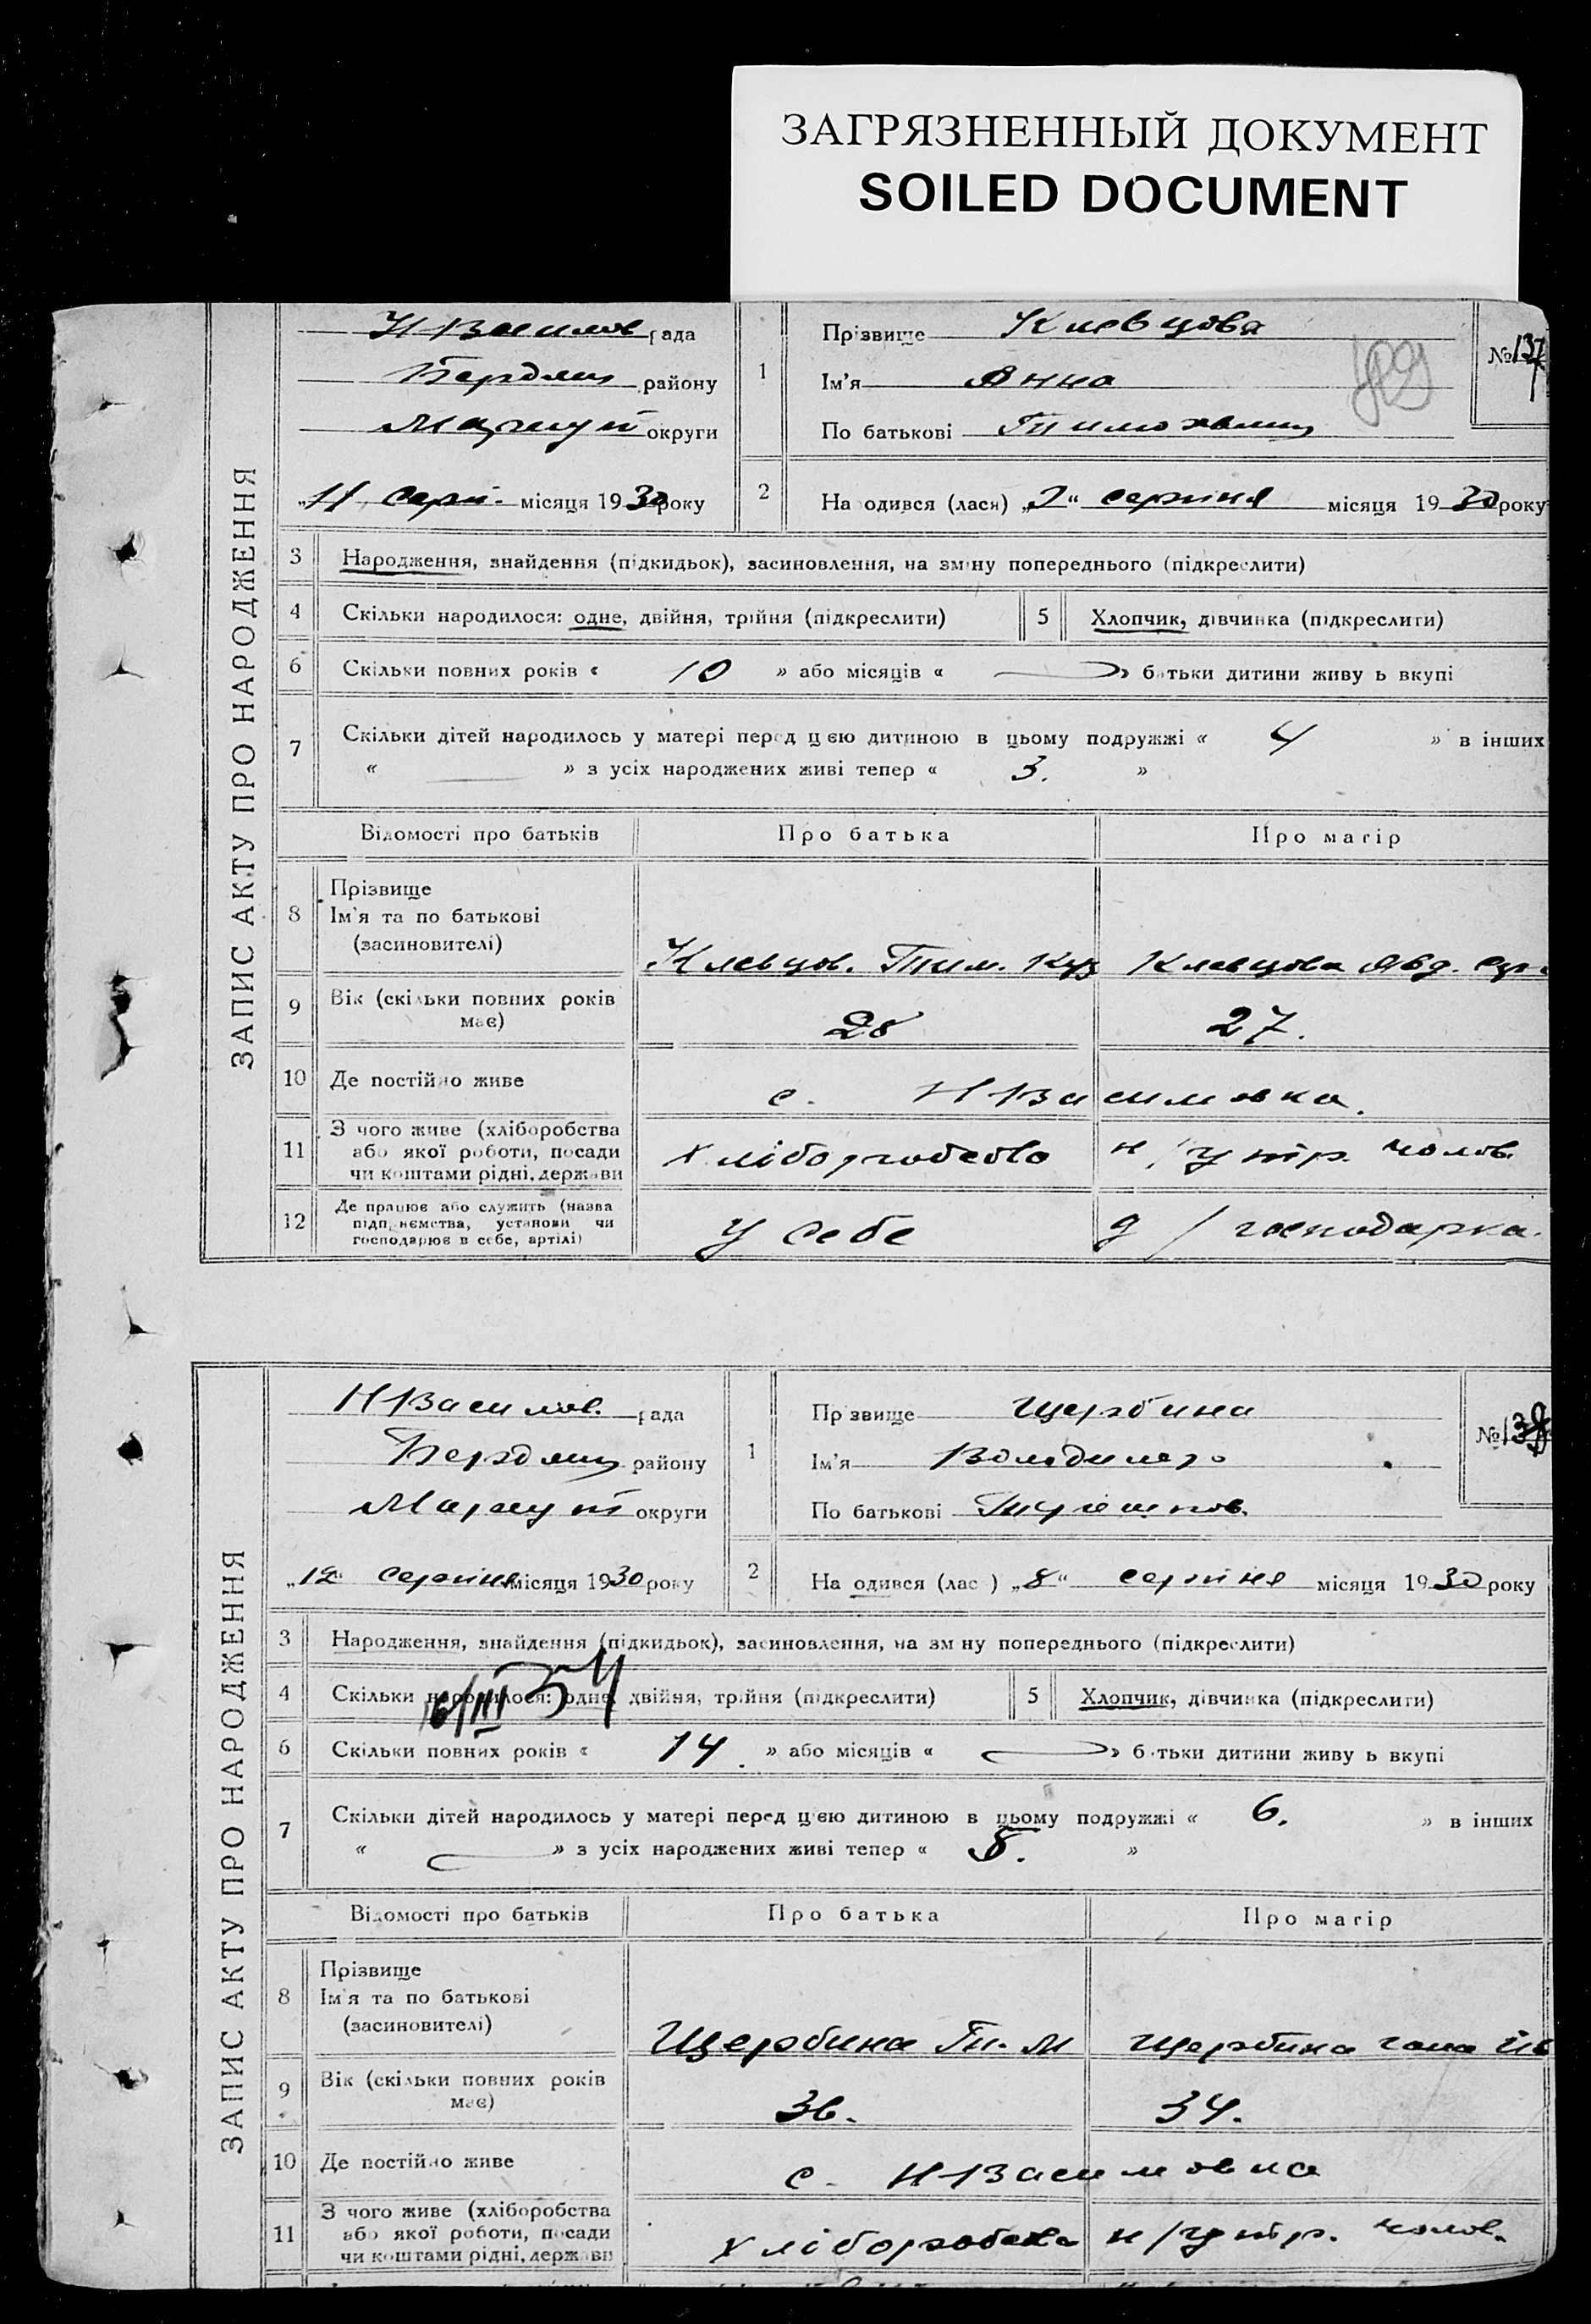 ЗАГРЯЗНЕННЫЙ ДОКУМЕНТ
SOILED DOCUMENT
ЗАПИС АКТУ ПРО НАРОДЖЕННЯ
НВасилов рада
Бердян району
Мариуп округи
„11 Серп. місяця 1930 року
1
Прізвище Клевцова
Ім'я Анна
По батькові
№ 137
2
На одився (лася) „2" серпня місяця 1930 року
3 Народження, знайдення (підкидьок), засиновлення, на зміну попереднього (підкреслити)
4 Скільки народилося: одне, двійня, трійня (підкреслити)
5 Хлопчик, дівчинка (підкреслити)
6 Скільки повних років « 10 » або місяців « » батьки дитини живу ь вкупі
7 Скільки дітей народилось у матері перед цією дитиною в цьому подружжі « 4 » в інших
« » з усіх народжених живі тепер « 3. »
Відомості про батьків Про батька Про матір
8 Прізвище
Ім'я та по батькові
(засиновителі)
Клевцов. Тим. Куз Клевцова Явд.
9 Вік (скільки повних років має) 28 27.
10 Де постійно живе с. НВасиловка.
11 З чого живе (хліборобства
або якої роботи, посади
чи коштами рідні, держави
хліборобство н/утр. чолов.
12 Де працює або служить (назва
підприємства, установи чи
господарює в себе, артілі)
у себе д/господарка.
ЗАПИС АКТУ ПРО НАРОДЖЕННЯ
НВасилов. рада
Бердян району
Мариуп округи
„12" серпня місяця 1930 року
1
Пр звище Щербина
Ім'я Володимер
По батькові
№ 138
2
На одився (лас ) „8" серпня місяця 1930 року
3 Народження, знайдення (підкидьок), засиновлення, на зм ну попереднього (підкреслити)
4 Скільки народилося: одне, двійня, трійня (підкреслити)
5 Хлопчик, дівчинка (підкреслити)
6 Скільки повних років « 14. » або місяців « » б тьки дитини живу ь вкупі
7 Скільки дітей народилось у матері перед цією дитиною в цьому подружжі « 6. » в інших
« » з усіх народжених живі тепер « 5. »
Відомості про батьків Про батька Про матір
8 Прізвище
Ім'я та по батькові
(засиновителі)
Щербина Ти. М Щербина
9 Вік (скільки повних років має) 36. 34.
10 Де постійно живе с. НВасиловка
11 З чого живе (хліборобства
або якої роботи, посади
чи коштами рідні, держави
хліборобство н/утр. чолов.